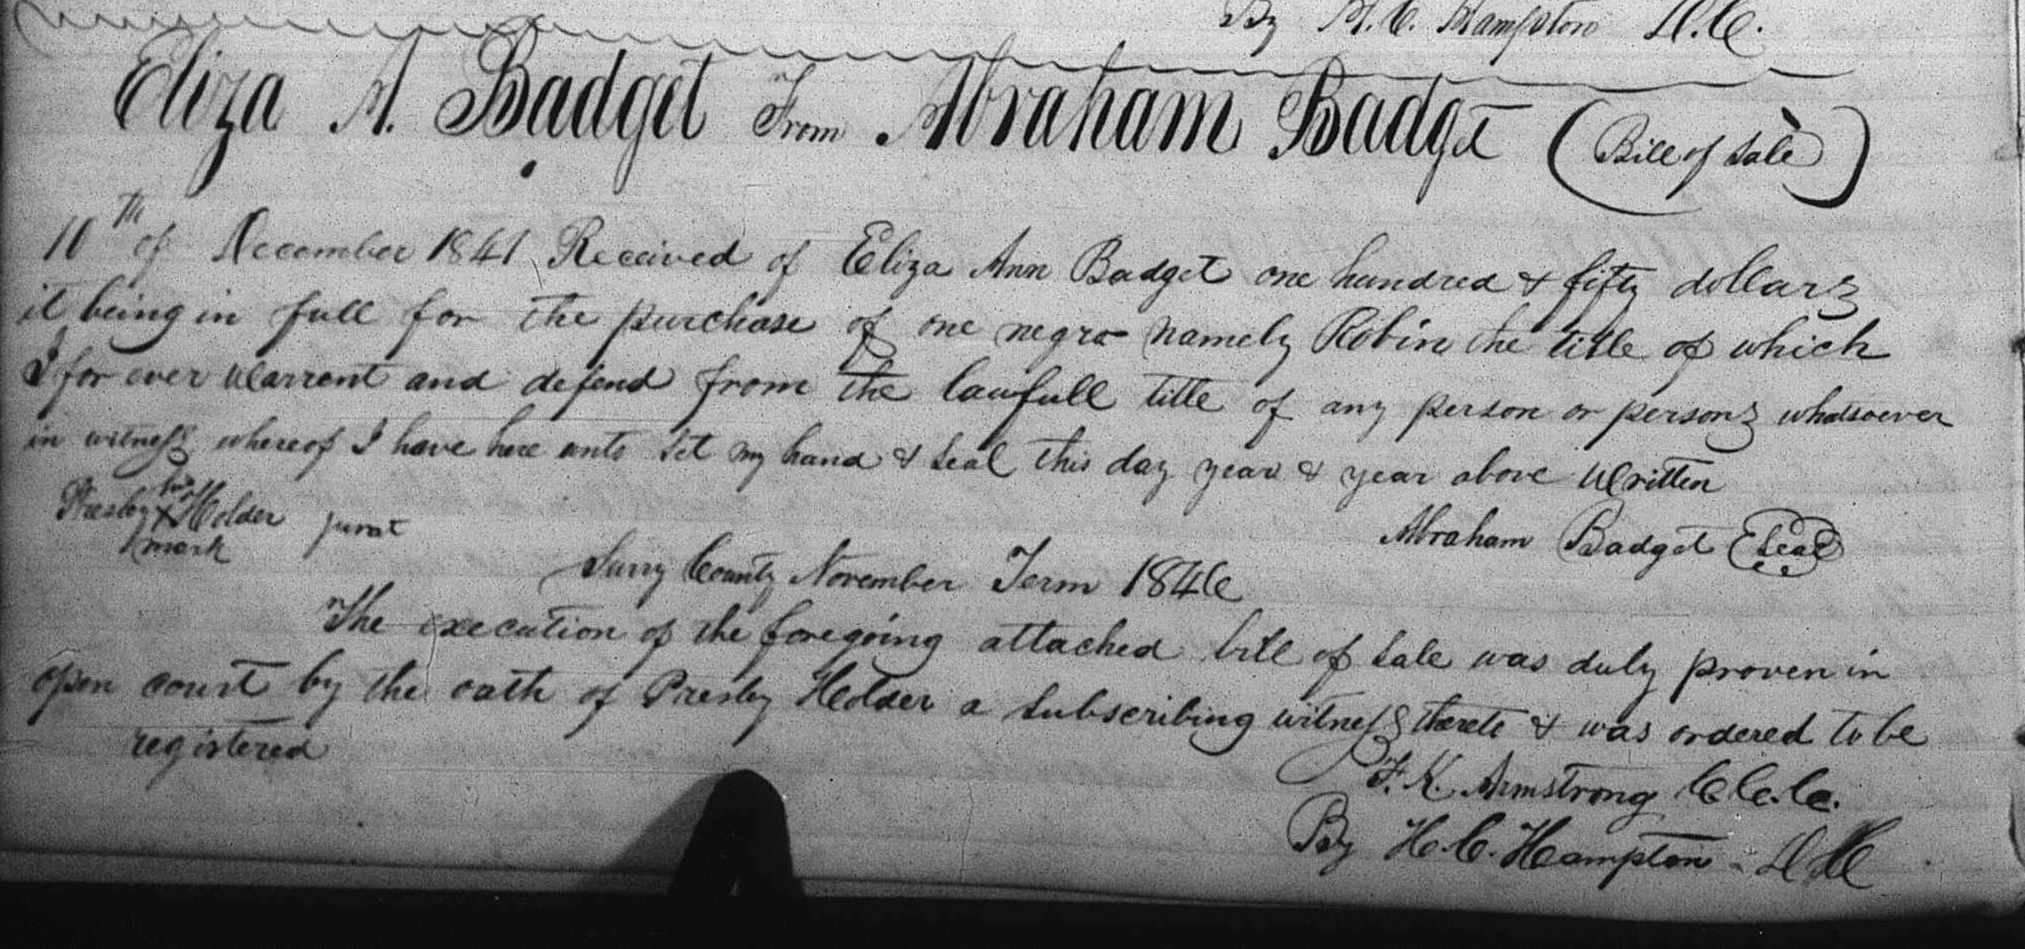 By H. C. Hampton D.C.
Eliza A. Badget From Abraham Badget (Bill of Sale)
10th of December 1841 Received of Eliza Ann Badget one hundred & fifty dollars
it being in full for the purchase of one negro namely Robin the title of which
I for ever warrent and defend from the lawfull title of any person or persons whatsoever
in witness whereof I have here unto set my hand & seal this day year & year above written
his
Presley X Holder jurat
mark
Abraham Badget (Seal)
Surry County November Term 1846
The execution of the foregoing attached bill of sale was duly proven in
open court by the oath of Presley Holder a subscribing witness thereto & was ordered to be
registered
F. K. Armstrong C.C.C.
By H. C. Hampton D C